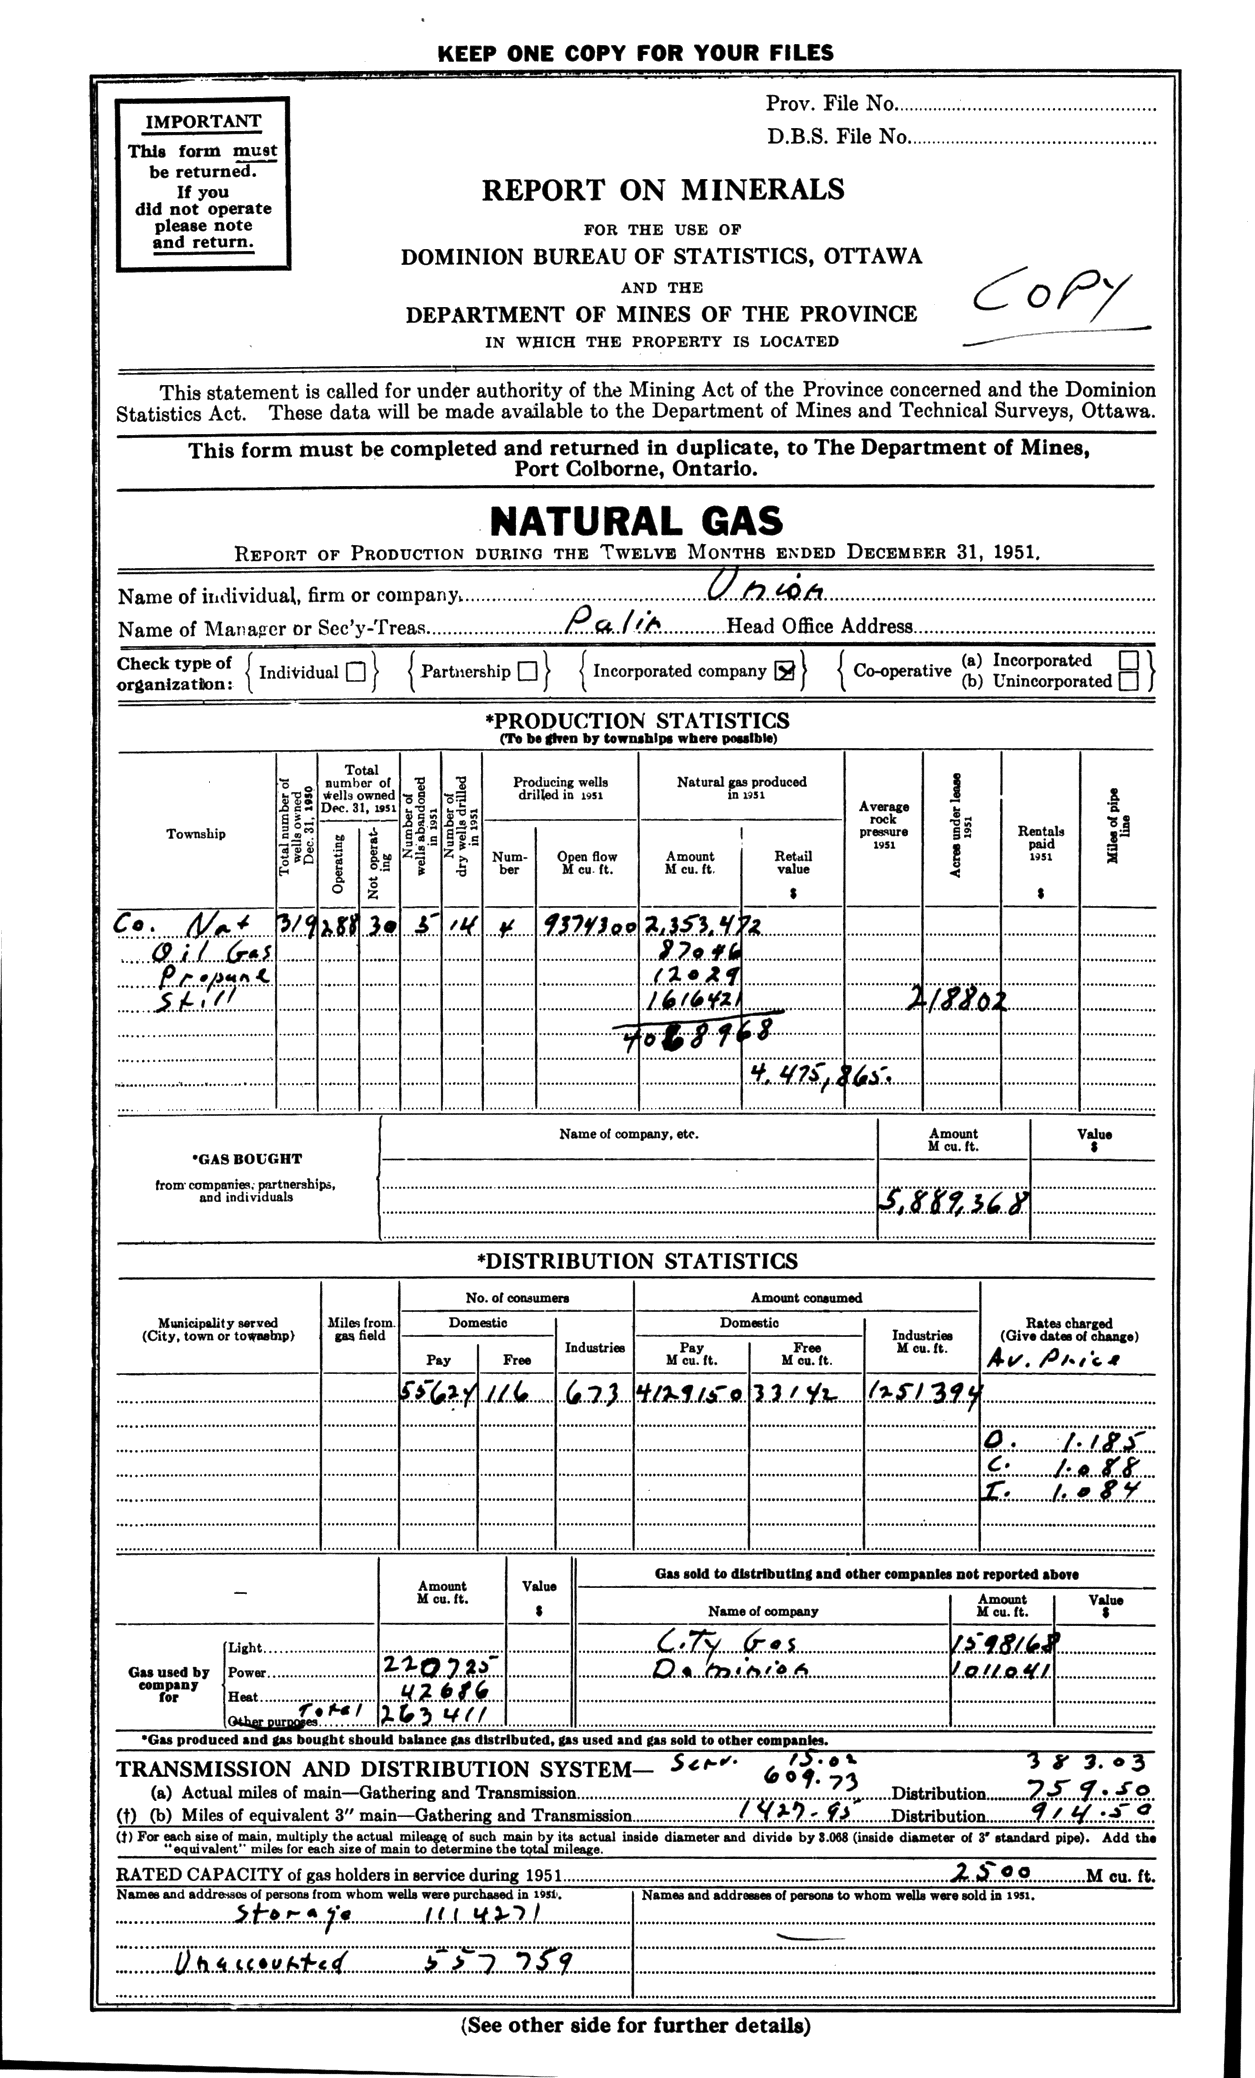 KEEP ONE COPY FOR YOUR FILES
IMPORTANT
This form must
be returned.
If you
did not operate
please note
and return.
Prov. File No.
D.B.S. File No.
REPORT ON MINERALS
FOR THE USE OF
DOMINION BUREAU OF STATISTICS, OTTAWA
AND THE
DEPARTMENT OF MINES OF THE PROVINCE
IN WHICH THE PROPERTY IS LOCATED
COPY
This statement is called for under authority of the Mining Act of the Province concerned and the Dominion
Statistics Act. These data will be made available to the Department of Mines and Technical Surveys, Ottawa.
This form must be completed and returned in duplicate, to The Department of Mines,
Port Colborne, Ontario.
NATURAL GAS
REPORT OF PRODUCTION DURING THE TWELVE MONTHS ENDED DECEMBER 31, 1951.
Name of individual, firm or company. Union
Name of Manager or Sec'y-Treas. Palin Head Office Address
Check type of
organization: Individual Partnership Incorporated company Co-operative (a) Incorporated
(b) Unincorporated
*PRODUCTION STATISTICS
(To be given by townships where possible)
Township
Total number of wells owned Dec. 31, 1950
Total number of wells owned Dec. 31, 1951
Operating
Not operating
Number of wells abandoned in 1951
Number of dry wells drilled in 1951
Producing wells drilled in 1951
Number
Open flow M cu. ft.
Natural gas produced in 1951
Amount M cu. ft.
Retail value $
Average rock pressure 1951
Acres under lease 1951
Rentals paid 1951 $
Miles of pipe line
Co. Nat 319 288 30 5 14 4 9374300 2,353,472
Oil Gas 87046
Propane 12029
Still 1616421 218802
4068968
4,475,865.
*GAS BOUGHT
from companies, partnerships,
and individuals
Name of company, etc.
Amount M cu. ft.
Value $
5,889,368
*DISTRIBUTION STATISTICS
Municipality served
(City, town or township)
Miles from gas field
No. of consumers
Domestic
Pay
Free
Industries
Amount consumed
Domestic
Pay M cu. ft.
Free M cu. ft.
Industries M cu. ft.
Rates charged
(Give dates of change)
Av. Price
55624 116 673 4129150 33142 1251394
D. 1.185
C. 1.088
I. 1.084
—
Amount M cu. ft.
Value $
Gas sold to distributing and other companies not reported above
Name of company
Amount M cu. ft.
Value $
Gas used by
company
for
Light
City Gas 1598168
Power 220725
Dominion 1011041
Heat 42686
Other purposes Total 263411
*Gas produced and gas bought should balance gas distributed, gas used and gas sold to other companies.
TRANSMISSION AND DISTRIBUTION SYSTEM— Serv. 15.02 383.03
(a) Actual miles of main—Gathering and Transmission 609.73 Distribution 759.50
(†) (b) Miles of equivalent 3" main—Gathering and Transmission 1427.95 Distribution 914.50
(†) For each size of main, multiply the actual mileage of such main by its actual inside diameter and divide by 3.068 (inside diameter of 3" standard pipe). Add the
"equivalent" miles for each size of main to determine the total mileage.
RATED CAPACITY of gas holders in service during 1951 2500 M cu. ft.
Names and addresses of persons from whom wells were purchased in 1951.
Names and addresses of persons to whom wells were sold in 1951.
Storage 1114271
Unaccounted 557759
(See other side for further details)